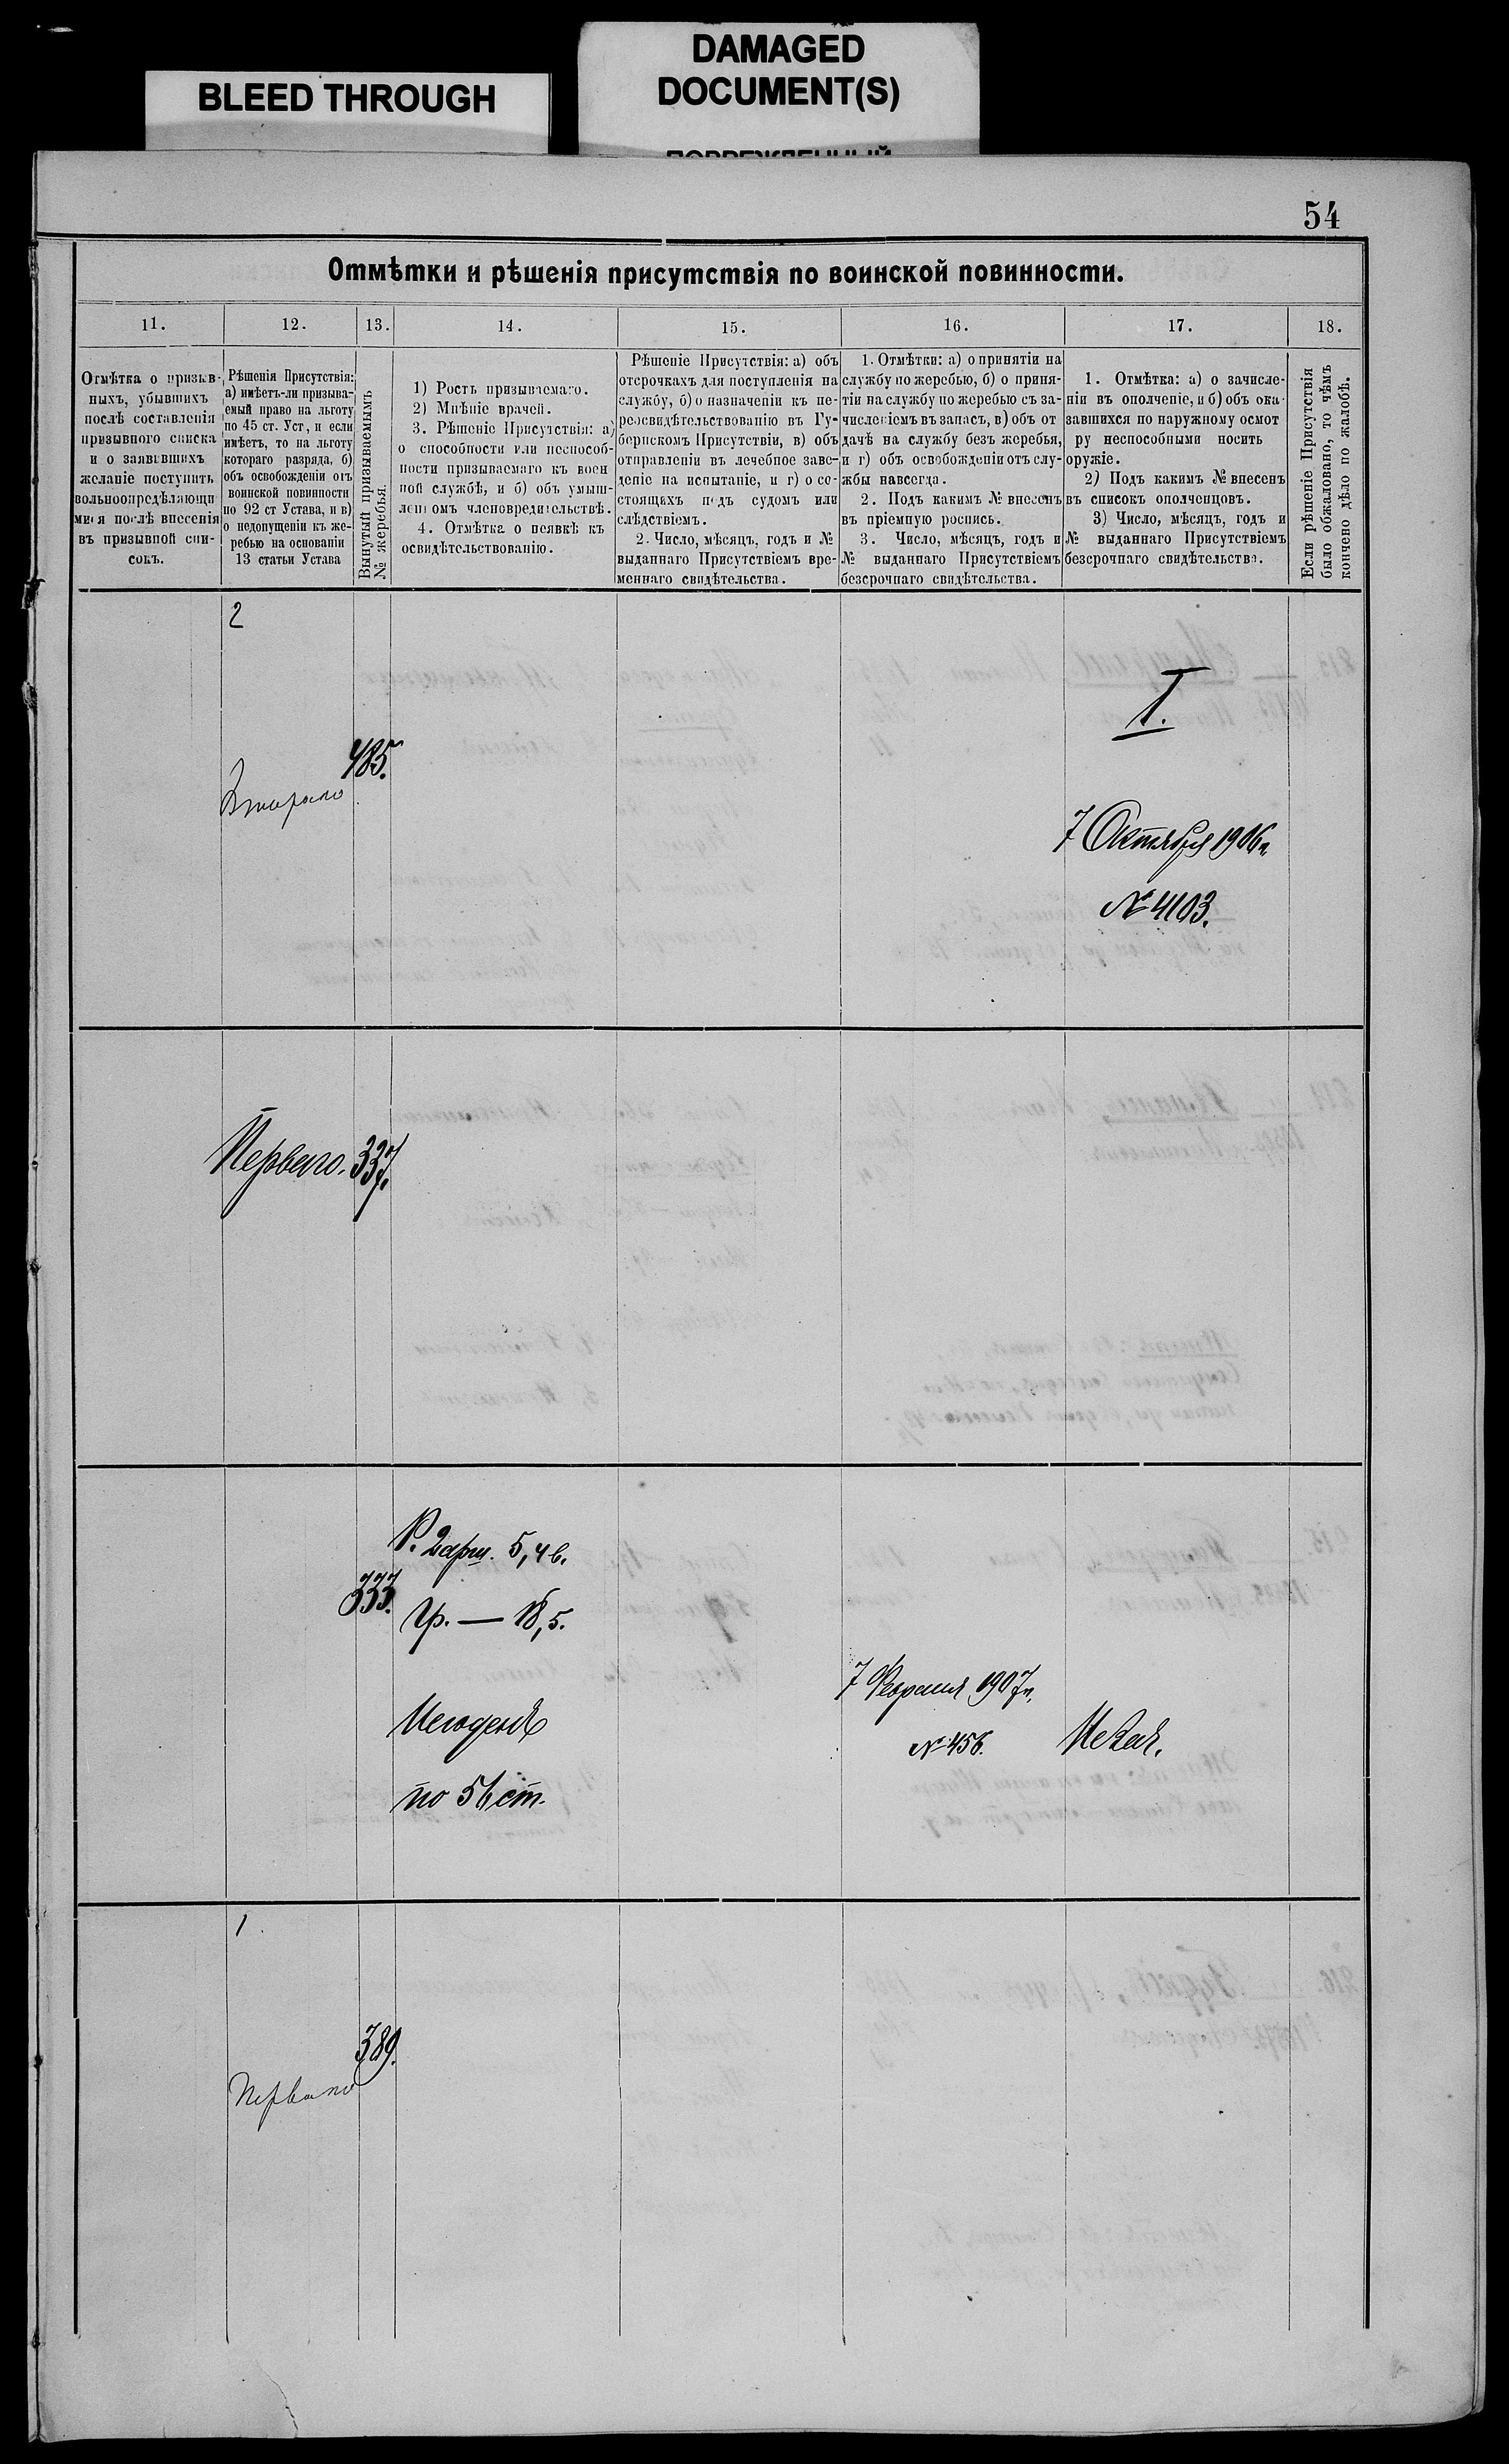 BLEED THROUGH
DAMAGED
DOCUMENT(S)
54
Отмѣтки и рѣшенія присутствія по воинской повинности.
11.
12.
13.
14.
15.
16.
17.
18.
Отмѣтка о призыв-
ныхъ, убывшихъ
послѣ составленія
призывного списка
и о заявившихъ
желаніе поступить
вольноопредѣляющи
мися послѣ внесенія
въ призывной спи-
сокъ.
Рѣшенія Присутствія:
а) имѣетъ-ли призыва-
емый право на льготу
по 45 ст. Уст, и если
имѣетъ, то на льготу
котораго разряда, б)
объ освобожденіи отъ
воинской повинности
по 92 ст Устава, и в)
о недопущеніи къ же-
ребью на основаніи
13 статьи Устава
Вынутый призываемымъ
№ жеребья.
1) Ростъ призываемаго.
2) Мнѣніе врачей.
3. Рѣшеніе Присутствія: а)
о способности или неспособ-
ности призываемаго къ воен
ной службѣ, и б) объ умыш-
ленномъ членовредительствѣ.
4. Отмѣтка о неявкѣ къ
освидѣтельствованію.
Рѣшеніе Присутствія: а) объ
отсрочкахъ для поступленія на
службу, б) о назначеніи къ пе-
реосвидѣтельствованію въ Гу-
бернскомъ Присутствіи, в) объ
отправленіи въ лечебное заве-
деніе на испытаніе, и г) о со-
стоящихъ подъ судомъ или
слѣдствіемъ.
2. Число, мѣсяцъ, годъ и №
выданнаго Присутствіемъ вре-
меннаго свидѣтельства.
1. Отмѣтки: а) о принятіи на
службу по жеребью, б) о приня-
тіи на службу по жеребью съ за-
численіемъ въ запасъ, в) объ от
дачѣ на службу безъ жеребья,
и г) объ освобожденіи отъ слу-
жбы навсегда.
2. Подъ какимъ № внесенъ
въ пріемную роспись.
3. Число, мѣсяцъ, годъ и
№ выданнаго Присутствіемъ
безсрочнаго свидѣтельства.
1. Отмѣтка: а) о зачисле-
ніи въ ополченіе, и б) объ ока-
завшихся по наружному осмот
ру неспособными носить
оружіе.
2) Подъ какимъ № внесенъ
въ списокъ ополченцовъ.
3) Число, мѣсяцъ, годъ и
№ выданнаго Присутствіемъ
безсрочнаго свидѣтельства.
Если рѣшеніе Присутствія
было обжаловано, то чѣмъ
кончено дѣло по жалобѣ.
2
Второго
485.
I.
7 Октября 1906 г.
№ 4103.
Перваго.
337.
333.
Р. 2 арш. 5,4 в.
Гр. — 18,5.
Негоденъ
по 56 ст.
7 Февраля 1907 г.
№ 456.
1
Перваго
389.